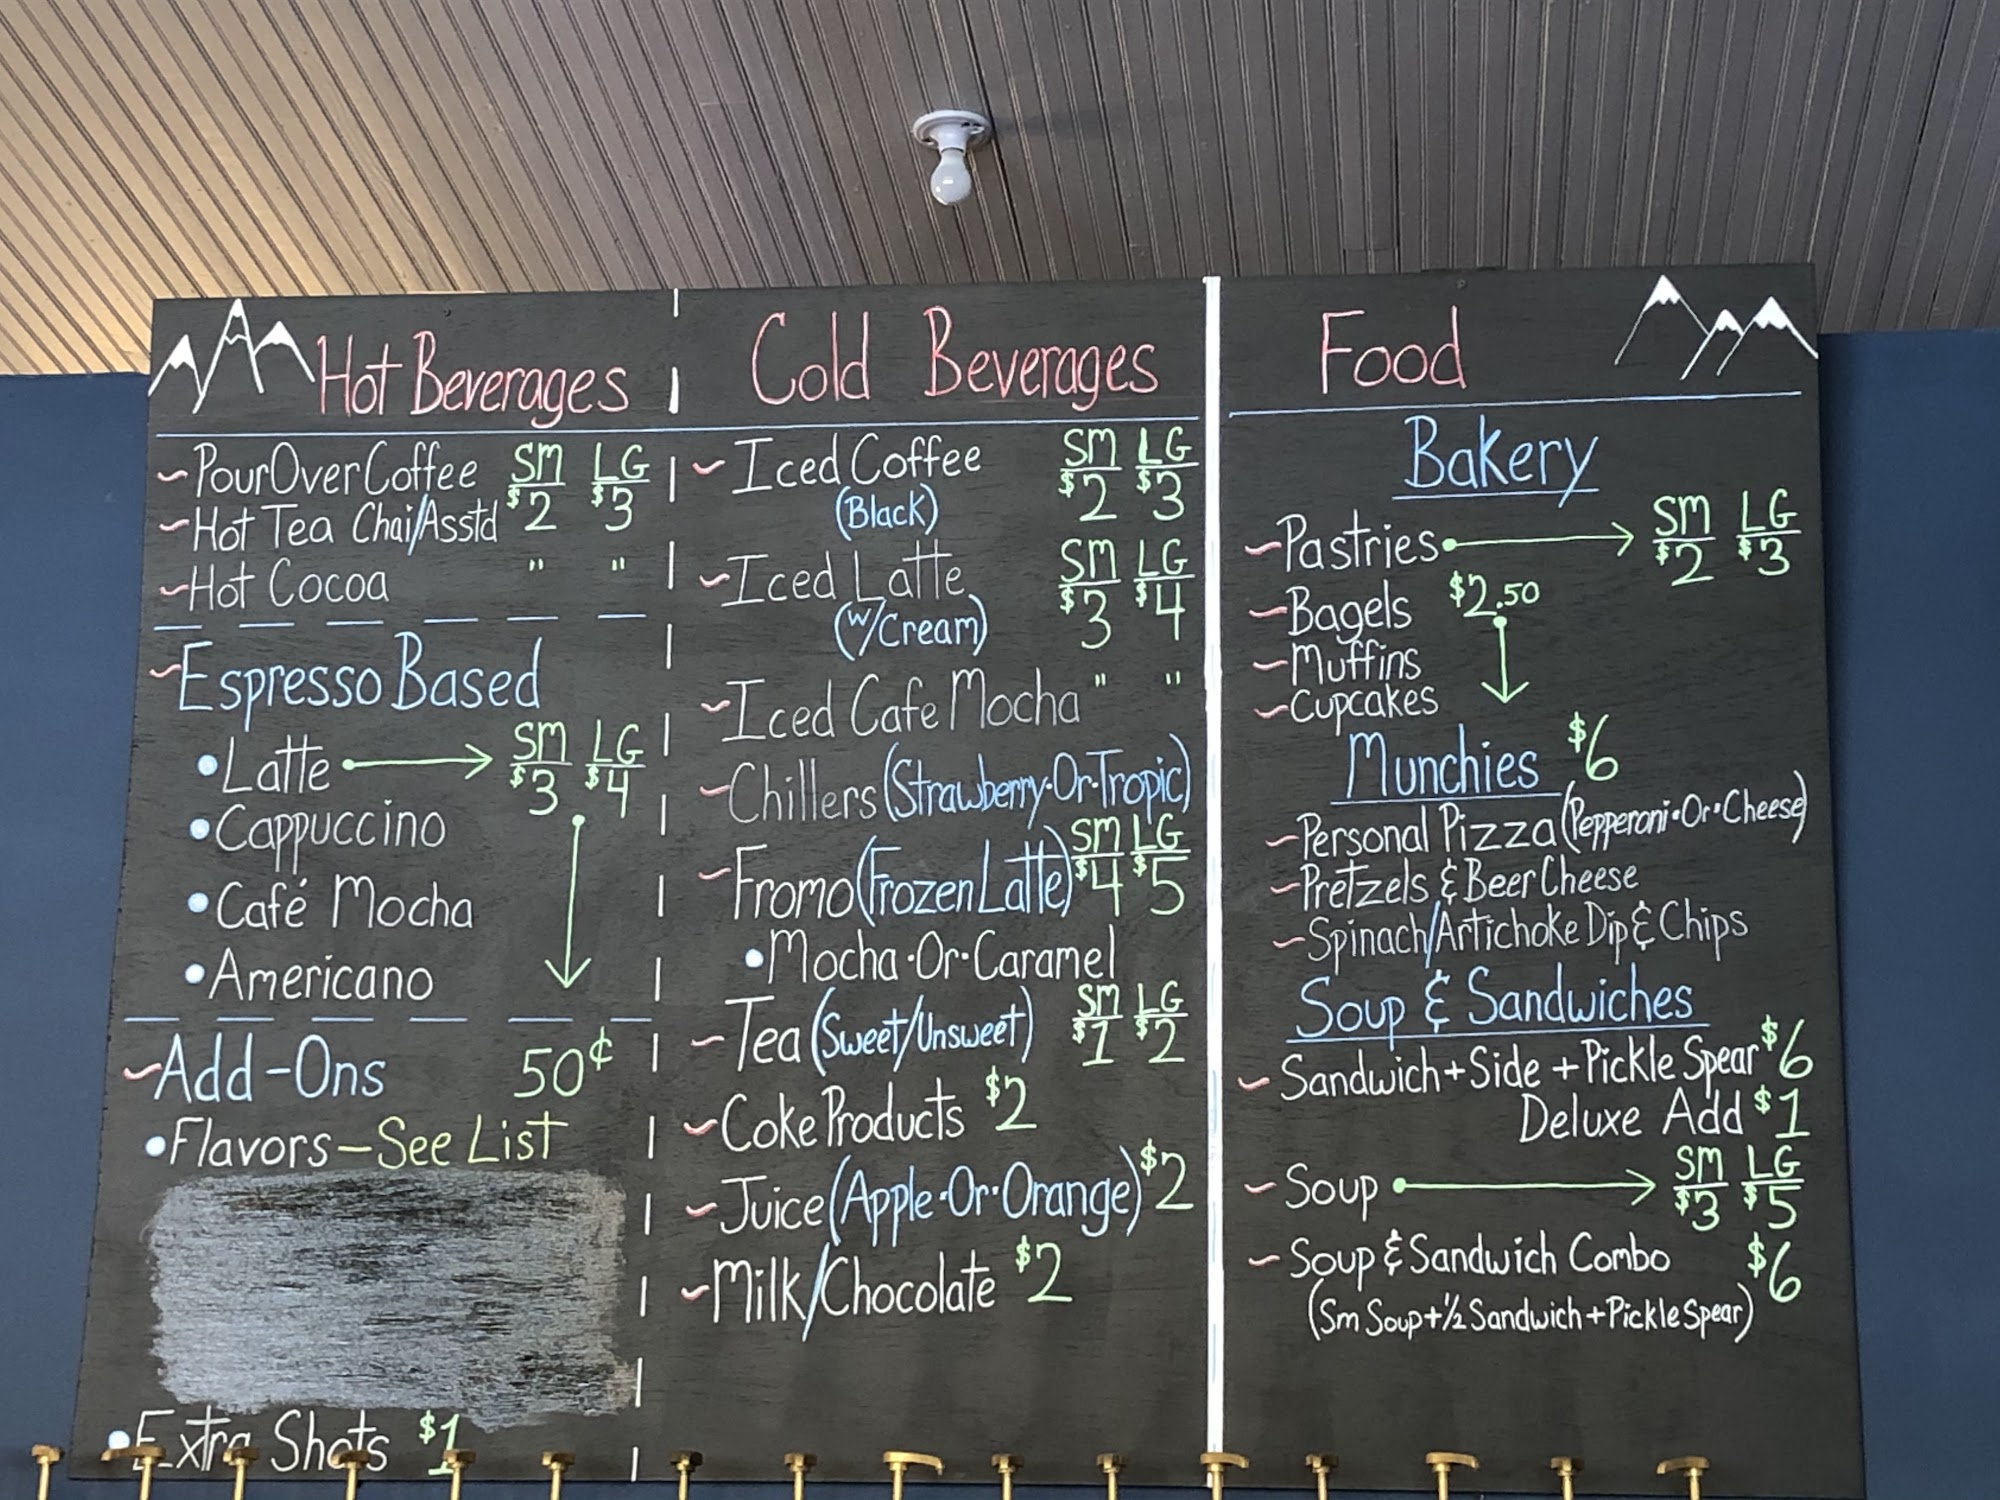 Hot Beverages
~PourOver Coffee SM LG
$2 $3
~Hot Tea Chai/Asstd
~Hot Cocoa " "
~Espresso Based
•Latte SM LG
$3 $4
•Cappuccino
•Café Mocha
•Americano
~Add-Ons 50¢
•Flavors-See List
•Extra Shots $1
Cold Beverages
~Iced Coffee SM LG
(Black) $2 $3
~Iced Latte SM LG
(w/Cream) $3 $4
~Iced Cafe Mocha " "
~Chillers (Strawberry·Or·Tropic)
~Fromo (Frozen Latte) SM LG
$4 $5
•Mocha·Or·Caramel
~Tea (Sweet/Unsweet) SM LG
$1 $2
~Coke Products $2
~Juice (Apple·Or·Orange) $2
~Milk/Chocolate $2
Food
Bakery
~Pastries SM LG
$2 $3
~Bagels $2.50
~Muffins
~Cupcakes
Munchies $6
~Personal Pizza (Pepperoni·Or·Cheese)
~Pretzels & Beer Cheese
~Spinach/Artichoke Dip & Chips
Soup & Sandwiches
~Sandwich + Side + Pickle Spear $6
Deluxe Add $1
~Soup SM LG
$3 $5
~Soup & Sandwich Combo $6
(Sm Soup + 1/2 Sandwich + Pickle Spear)